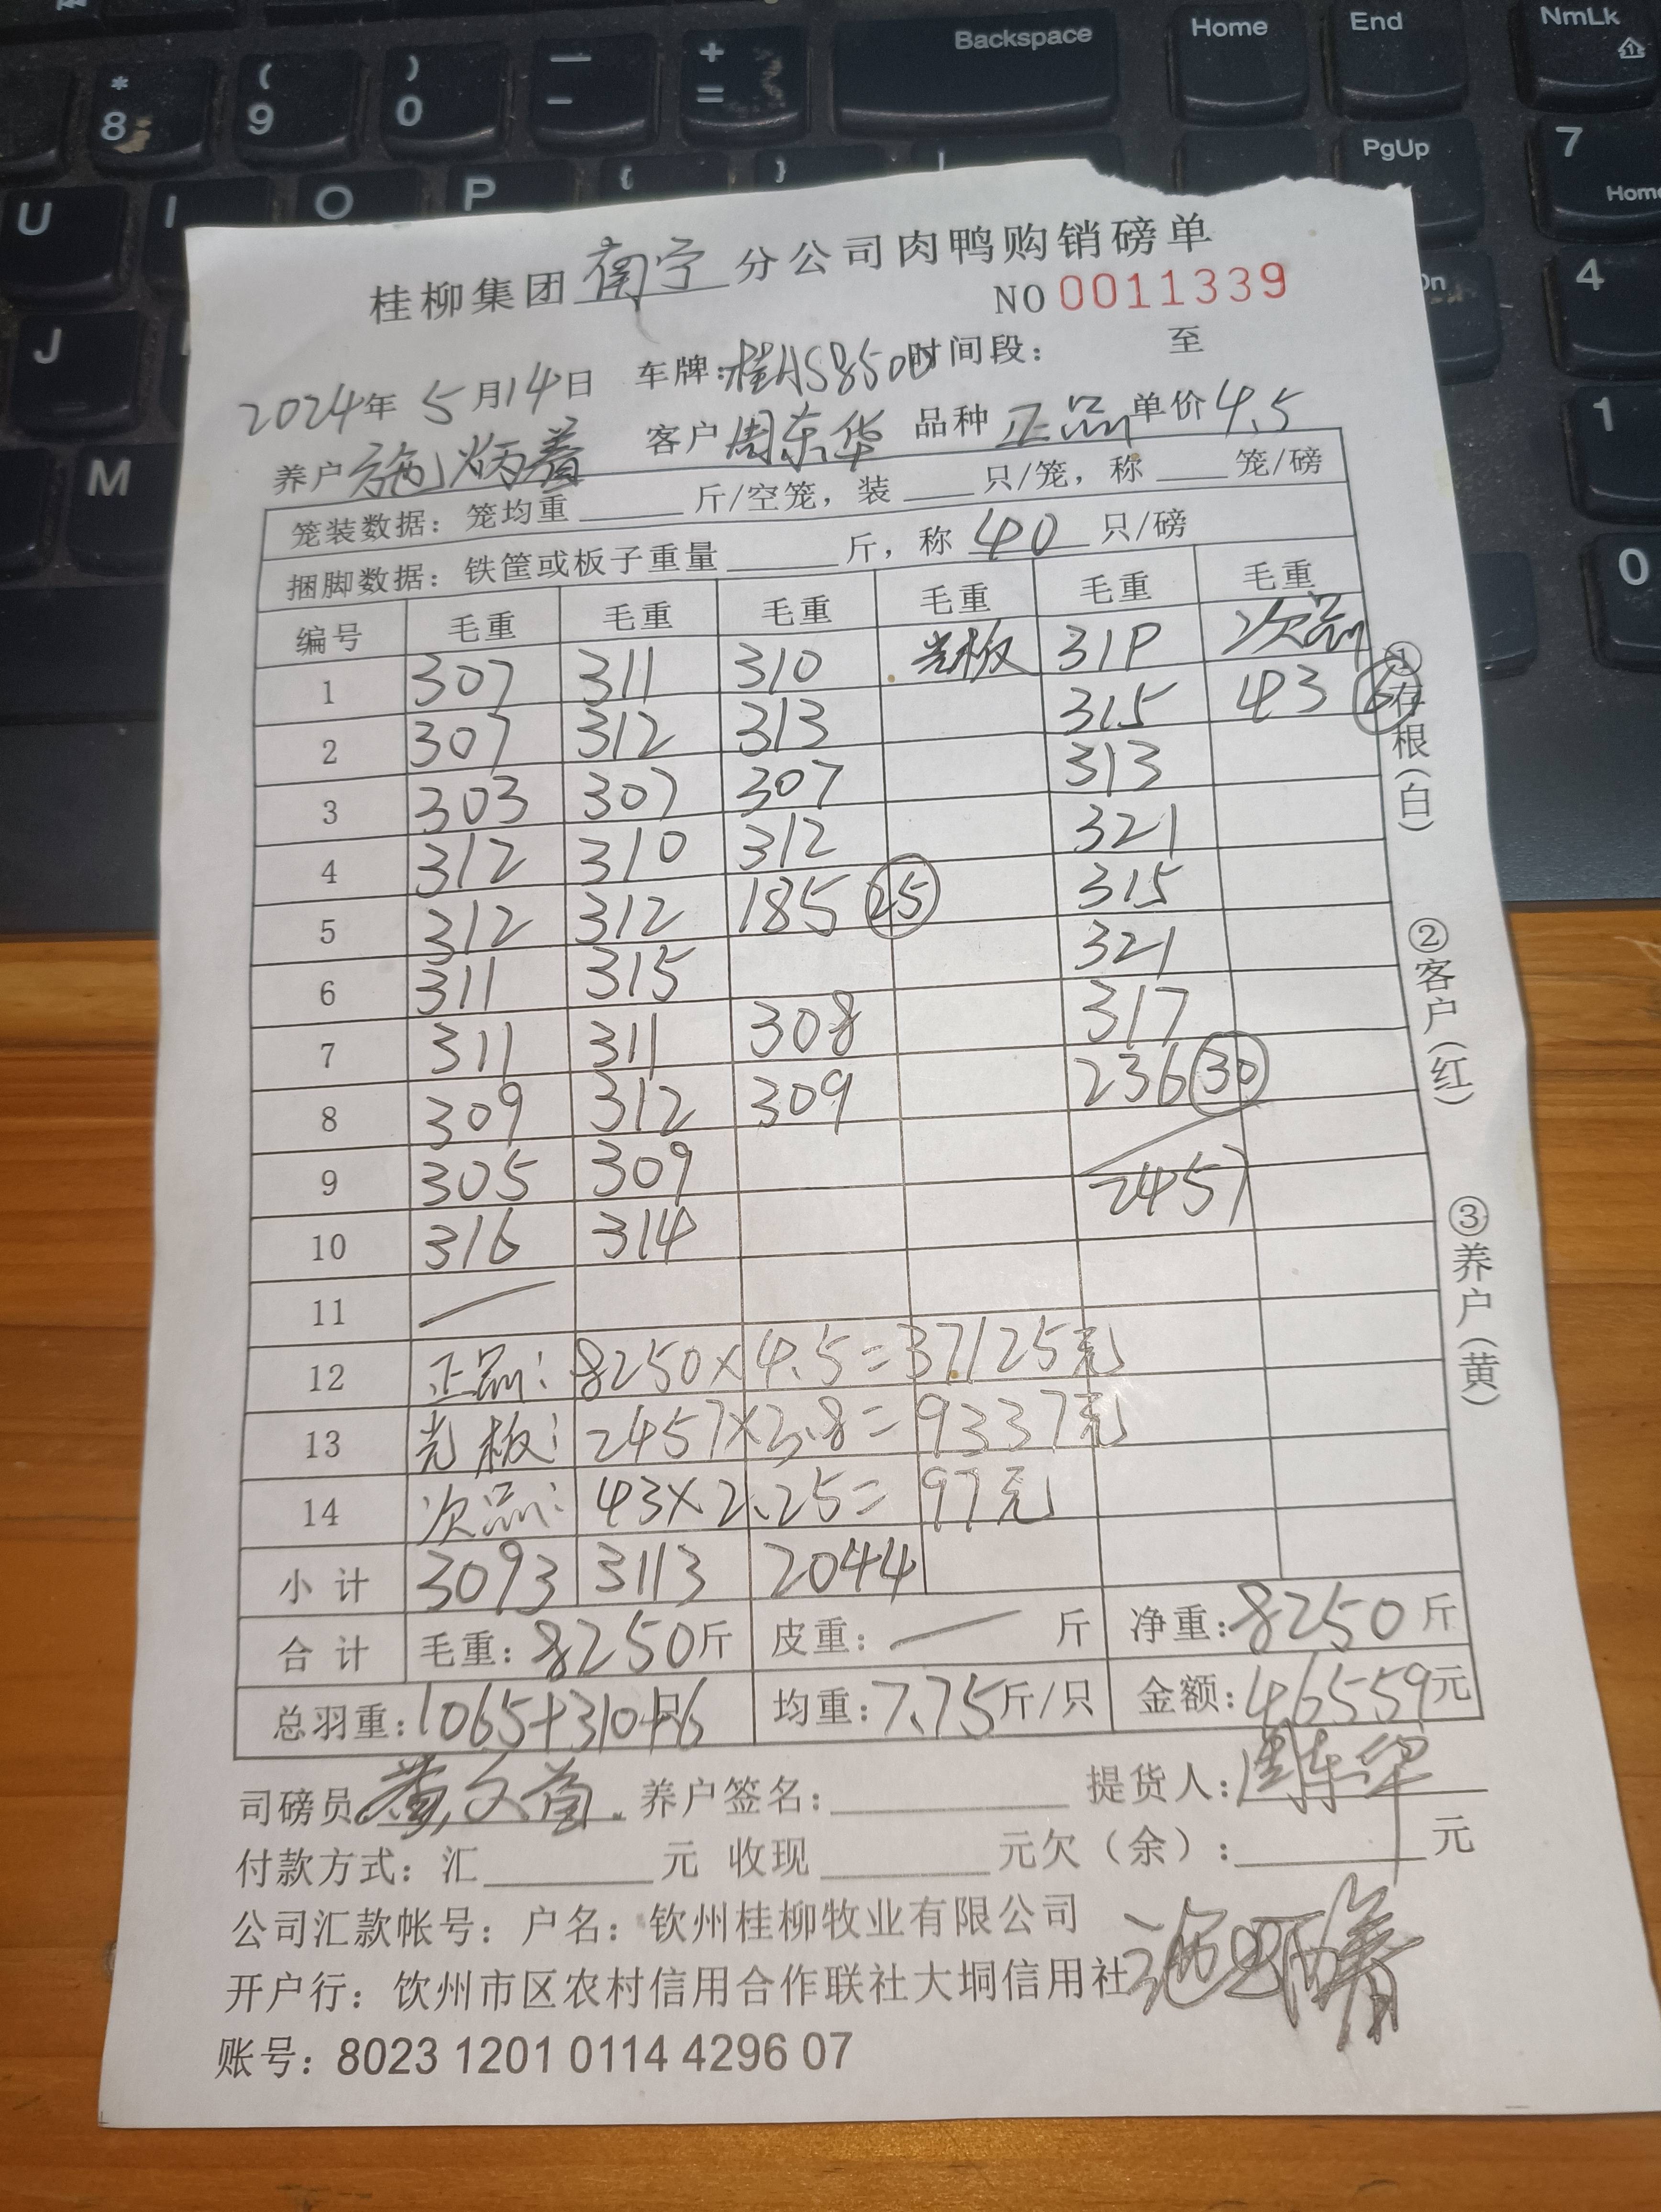 桂柳集团 南宁 分公司肉鸭购销磅单
NO 0011339
2024年 5月14日 车牌：桂AS8500 时间段： 至
养户 施炳着 客户 周东华 品种 正品 单价 4.5
笼装数据：笼均重 斤/空笼，装 只/笼，称 笼/磅
捆脚数据：铁筐或板子重量 斤，称 40 只/磅
编号 毛重 毛重 毛重 毛重 毛重 毛重
1 307 311 310 光板 319 次品
2 307 312 313 315 43 ⑥
3 303 307 307 313
4 312 310 312 321
5 312 312 185 ㉕ 315
6 311 315 321
7 311 311 308 317
8 309 312 309 236 ㉚
9 305 309
10 316 314 2457
11 —
12 正品：8250×4.5=37125元
13 光板：2457×3.8=9337元
14 次品：43×2.25=97元
小计 3093 3113 2044
合计 毛重：8250斤 皮重：— 斤 净重：8250斤
总羽重：1065+310+6 只 均重：7.75斤/只 金额：46559元
司磅员 养户签名： 提货人：周东华
付款方式：汇 元 收现 元欠（余）： 元
公司汇款帐号：户名：钦州桂柳牧业有限公司
开户行：钦州市区农村信用合作联社大垌信用社
账号：8023 1201 0114 4296 07
①存根（白）
②客户（红）
③养户（黄）
*
8
(
9
)
0
—
-
+
=
Backspace
Home
End
NmLk
U
I
O
P
{
}
PgUp
7
Home
J
4
M
1
0